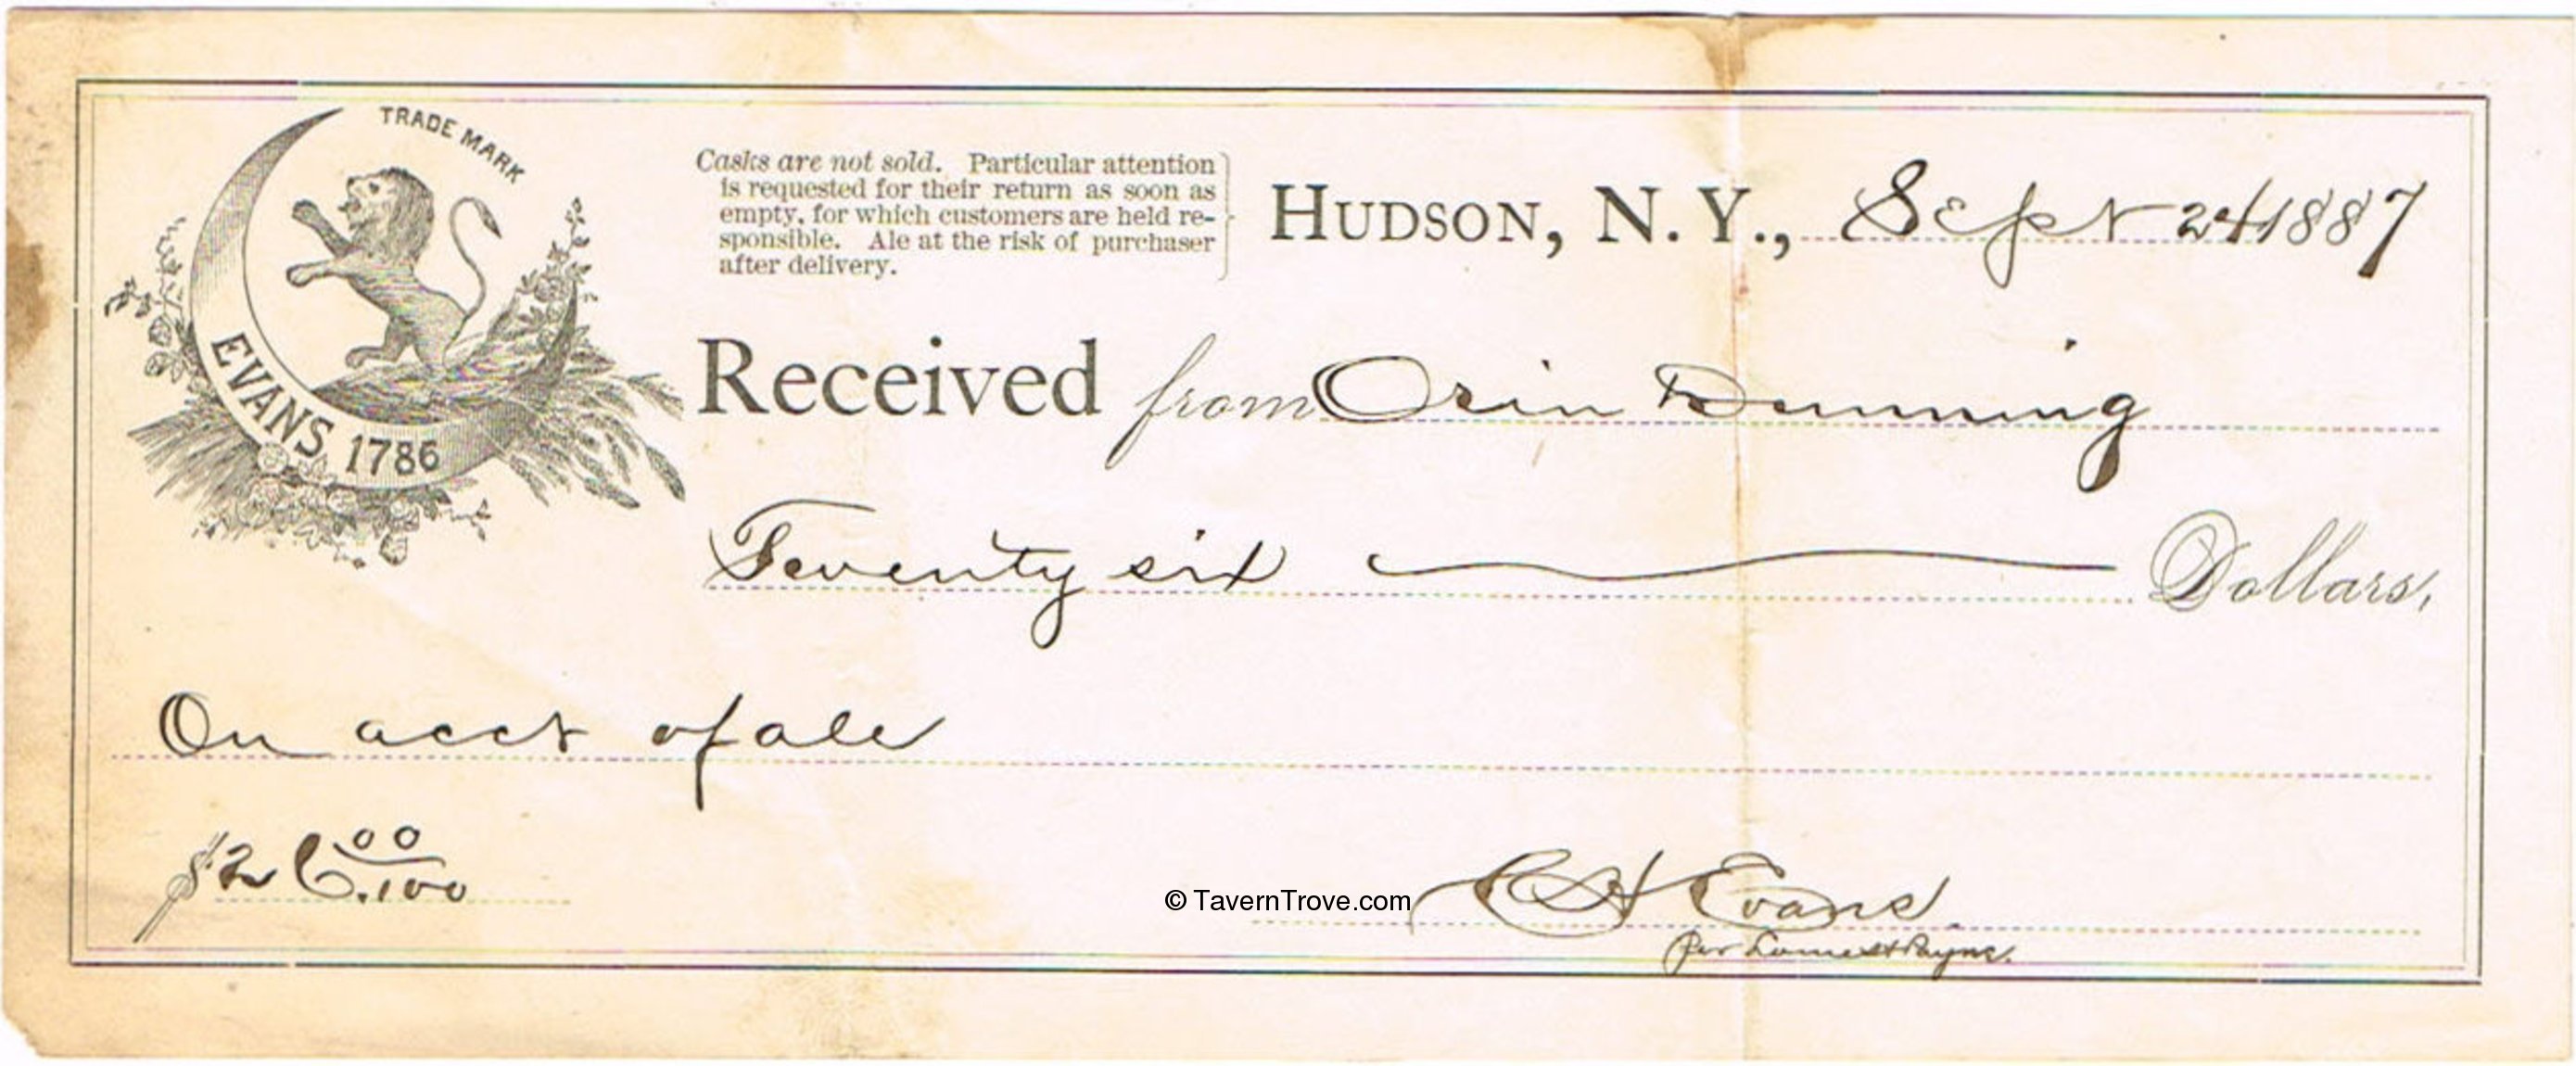 TRADE MARK
EVANS 1786
Casks are not sold. Particular attention
is requested for their return as soon as
empty, for which customers are held re-
sponsible. Ale at the risk of purchaser
after delivery.
HUDSON, N. Y., Sept 24 1887
Received from Orin Dunning
Twenty six Dollars,
On acct of ale
$26.00/100
© TavernTrove.com
C H Evans
per Payne.